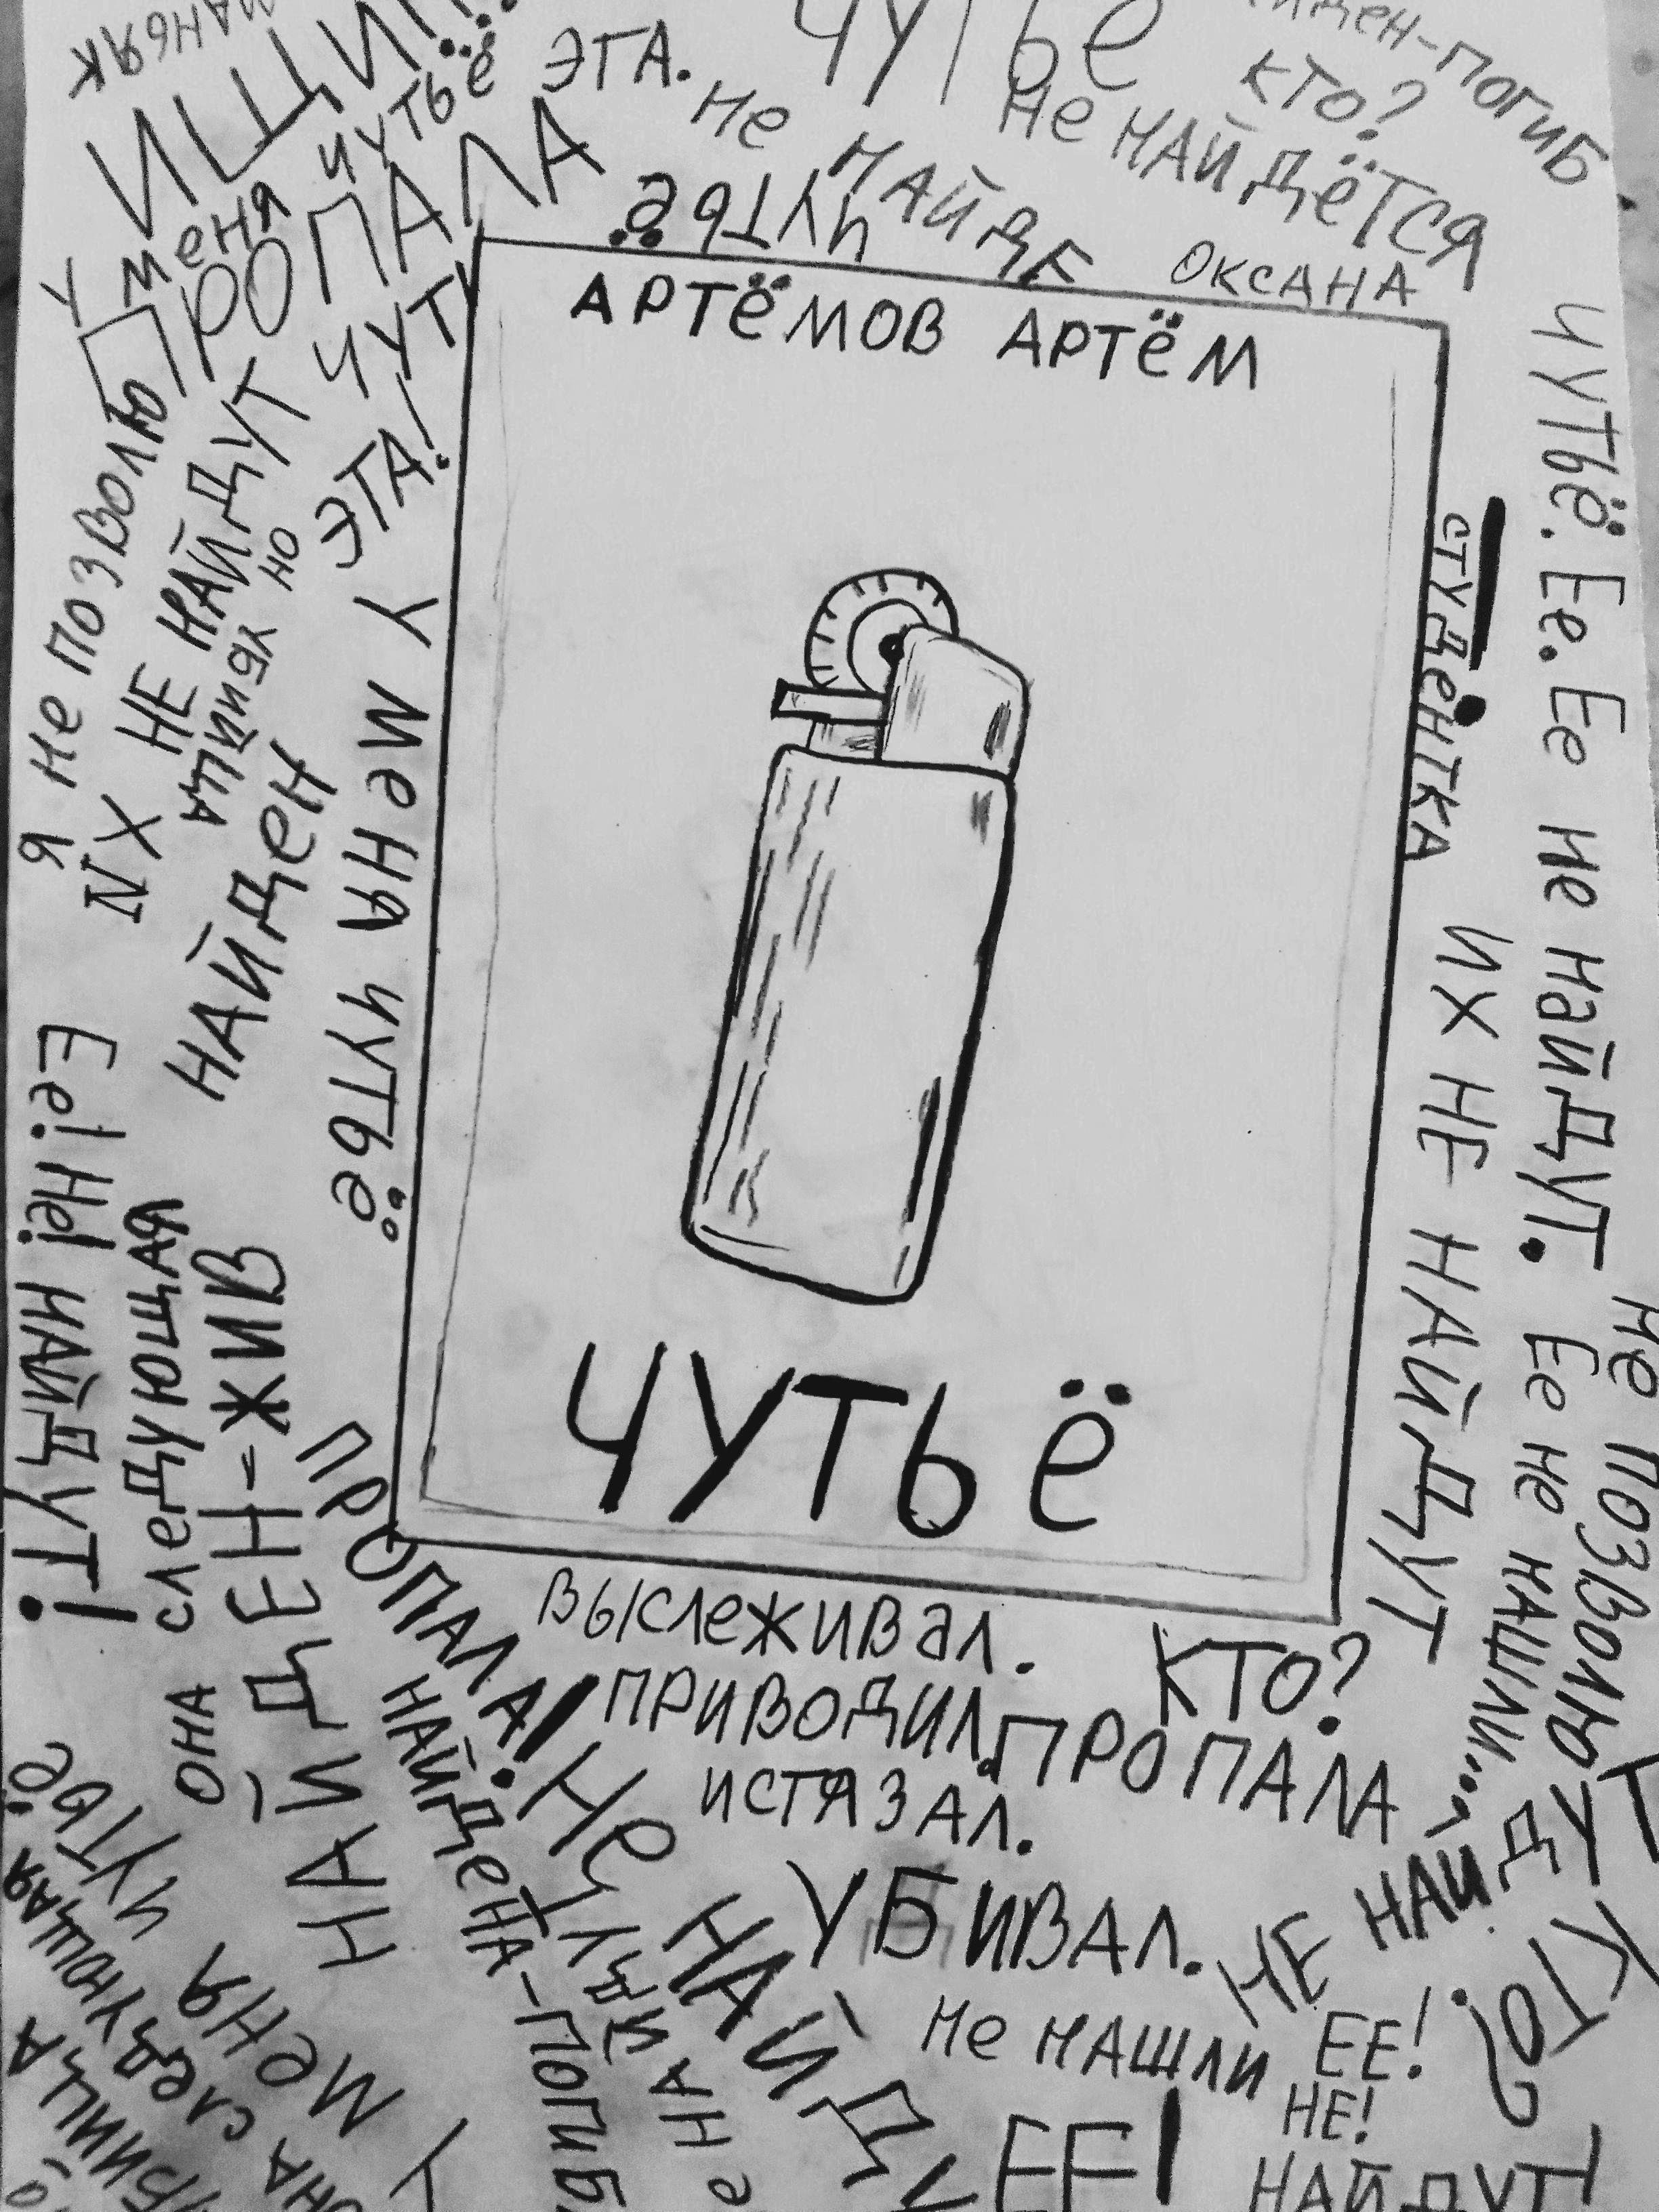 МАНЬЯК
ИЩИ!!!
ЧУТЬЁ
ЭТА.
ЧУТЬЁ
КТО?
НЕ НАЙДЁТСЯ
НЕ НАЙДЕ
ЧУТЬЁ
ОКСАНА
У МЕНЯ
ПРОПАЛА
ЧУТЬ
ЭТА!
АРТЁМОВ АРТЁМ
ЧУТЬЁ
я не позволю
ИХ НЕ НАЙДУТ
НО
УБИЙЦА
НАЙДЕН
У МЕНЯ ЧУТЬЁ
СТУДЕНТКА
ИХ НЕ НАЙДУТ
ЧУТЬЁ. Ее. Ее не найдут. Ее не нашли...
не позволю
Ее! Не! НАЙДУТ!
ОНА СЛЕДУЮЩАЯ
НАЙДЕН-ЖИВ
ПРОПАЛА!
НАЙДЕНА-ПОГИБ
ВЫСЛЕЖИВАЛ.
ПРИВОДИЛ.
ИСТЯЗАЛ.
УБИВАЛ.
КТО?
ПРОПАЛА
НЕ НАЙДУ
НЕ НАЙД
КТО?
НЕ НАШЛИ ЕЕ!
НЕ!
НАЙДУТ
ЕЕ!
У МЕНЯ ЧУТЬЁ
ОНА СЛЕДУЮЩАЯ